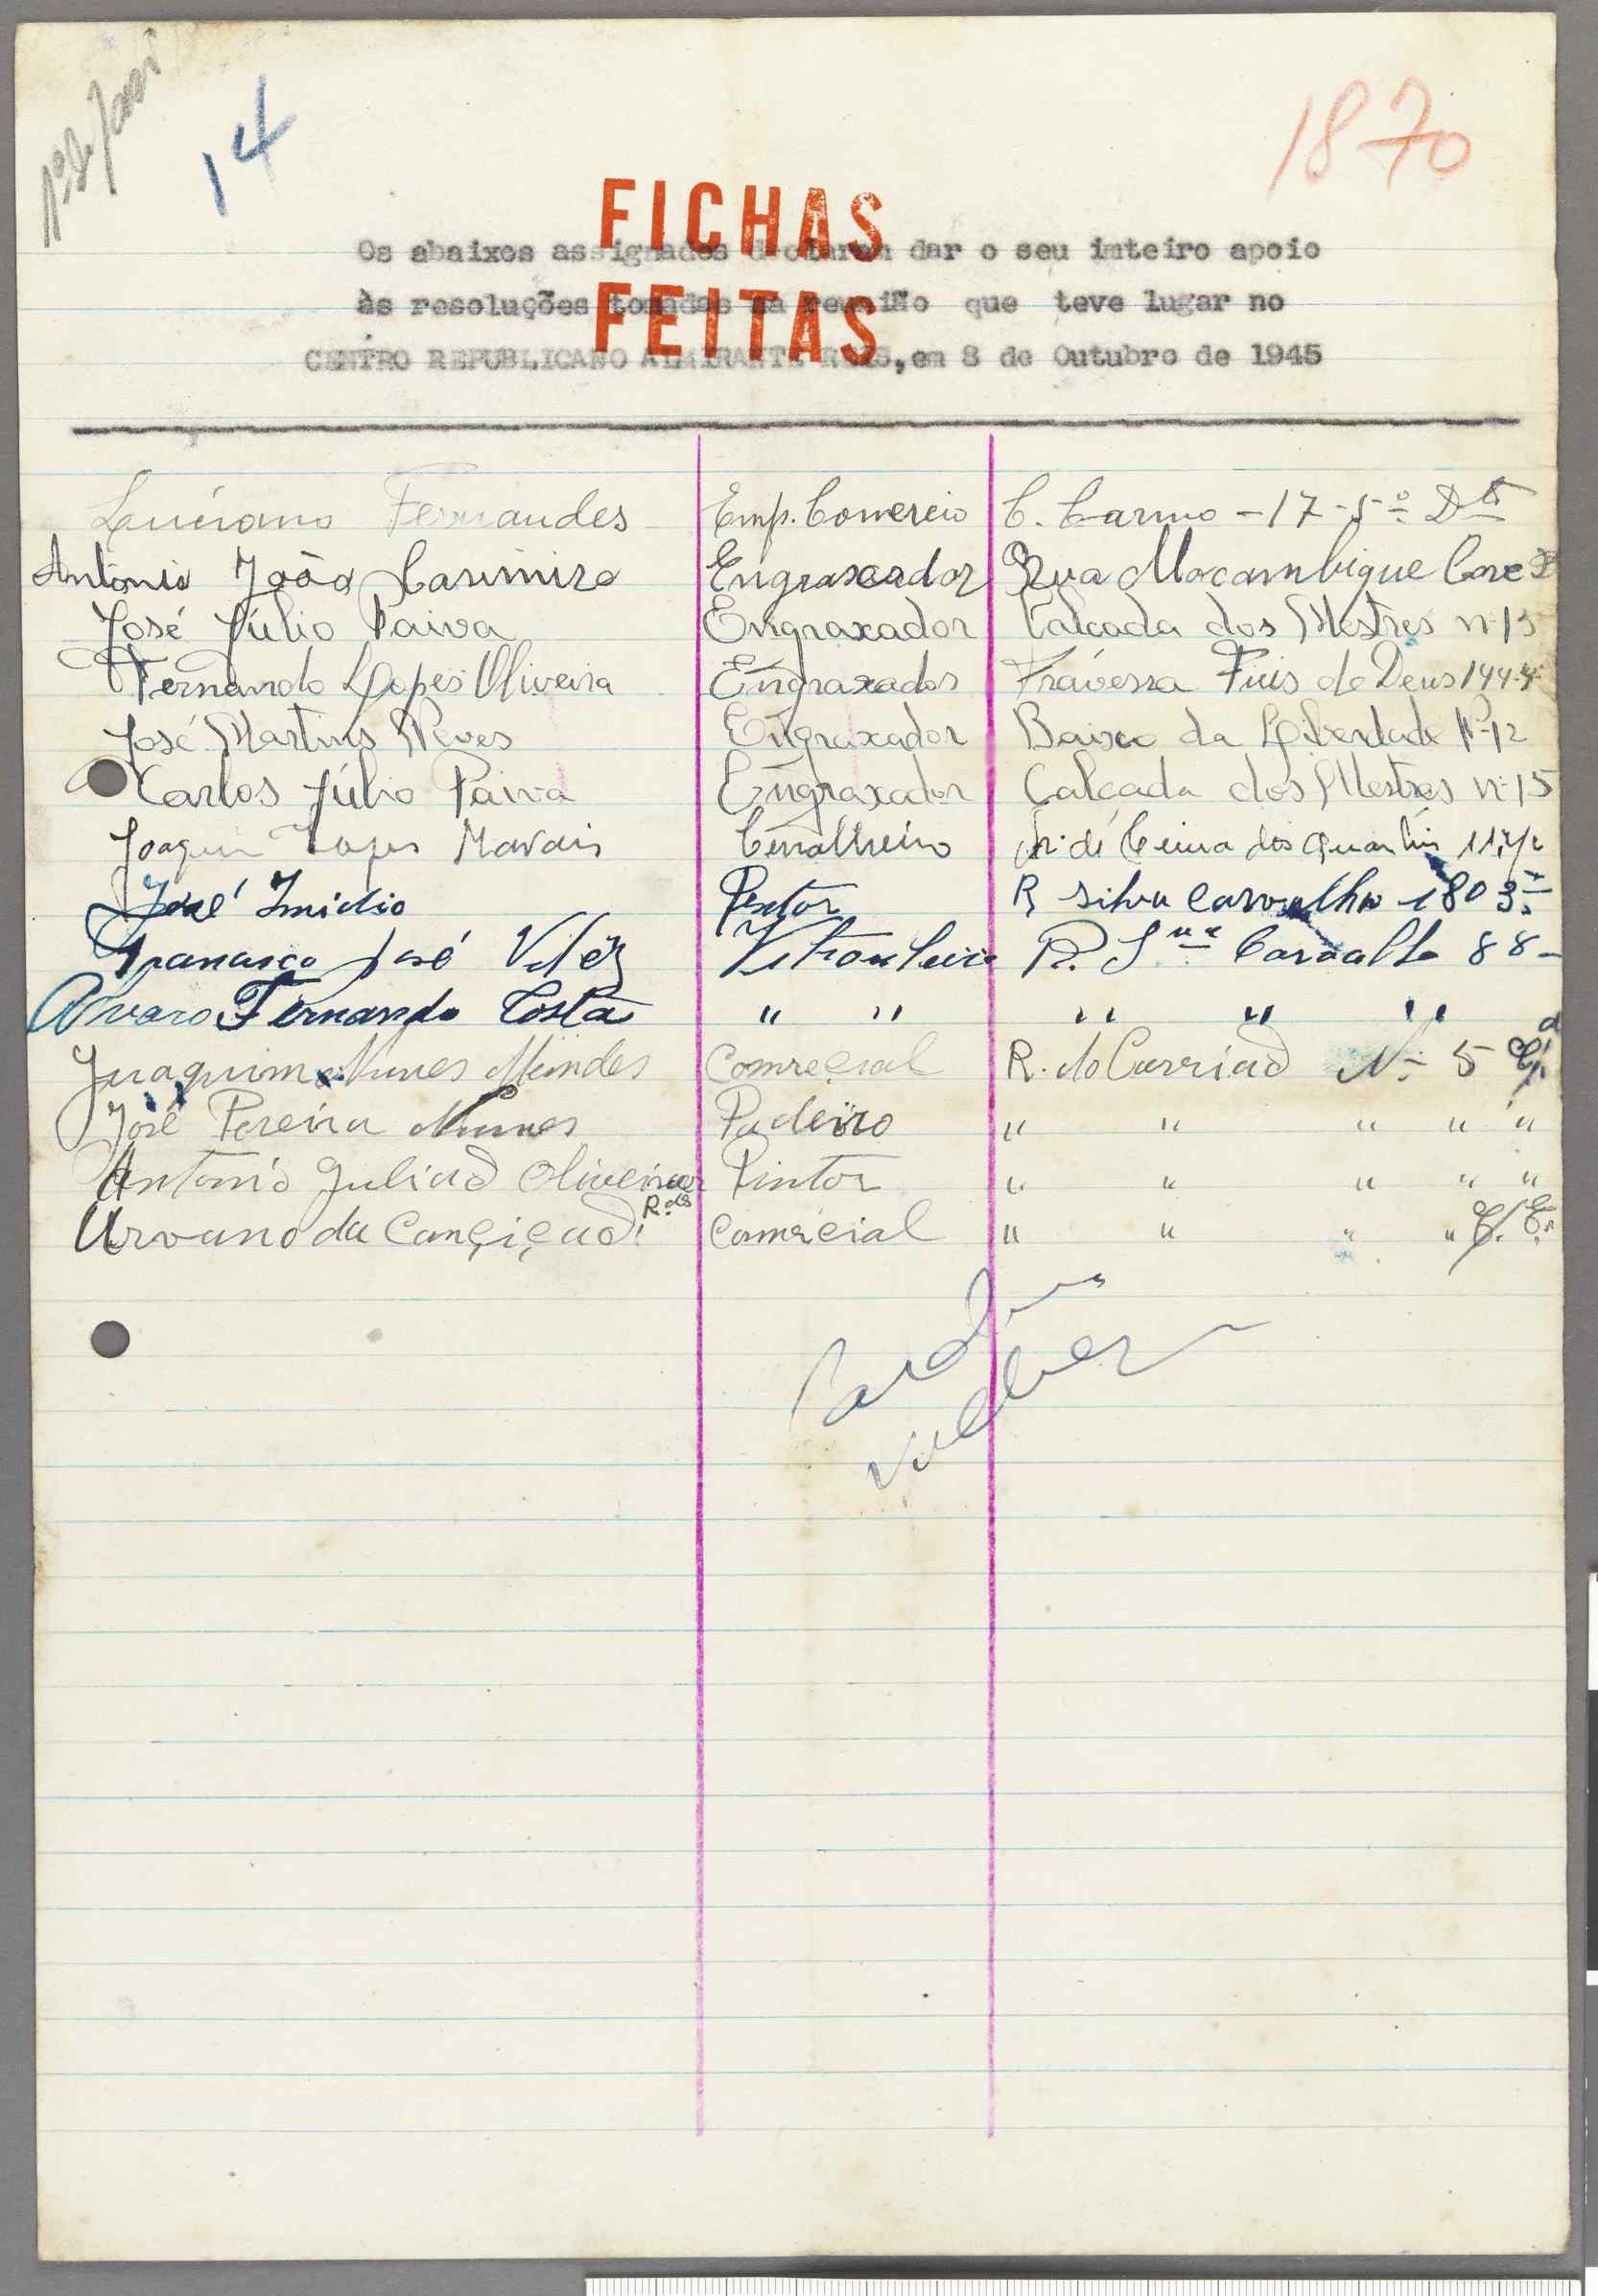 14
1870
FICHAS
FEITAS
Os abaixos assignados declaram dar o seu inteiro apoio
às resoluções tomadas na reunião que teve lugar no
CENTRO REPUBLICANO ALMIRANTE REIS, em 8 de Outubro de 1945
Luciano Fernandes Emp. Comercio C. Carmo - 17 - 5º Dtº
Antonio João Casimiro Engraxador Rua Moçambique
José Júlio Paiva Engraxador Calcada dos Mestres nº 15
Fernando Lopes Oliveira Engraxador Trávessa de Deus 144-4º
José Martins Neves Engraxador Bairro da Liberdade Nº 12
Carlos Júlio Paiva Engraxador Calcada dos Mestres nº 15
Joaquim Lopes Morais Cerralheiro
José Imidio Pintor R Silva Carvalho 180 3º
Francisco José R. Sva Carvalho 88-
Alvaro Fernando Costa " " " " "
Juaquim Nunes Mendes Comrecial R. do Curriad Nº 5
José Pereira Nunes Padeiro " " " " "
Antonio Juliad Oliveira Pintor " " " " "
Urvano da Conçiçad R.des Comercial " " " "